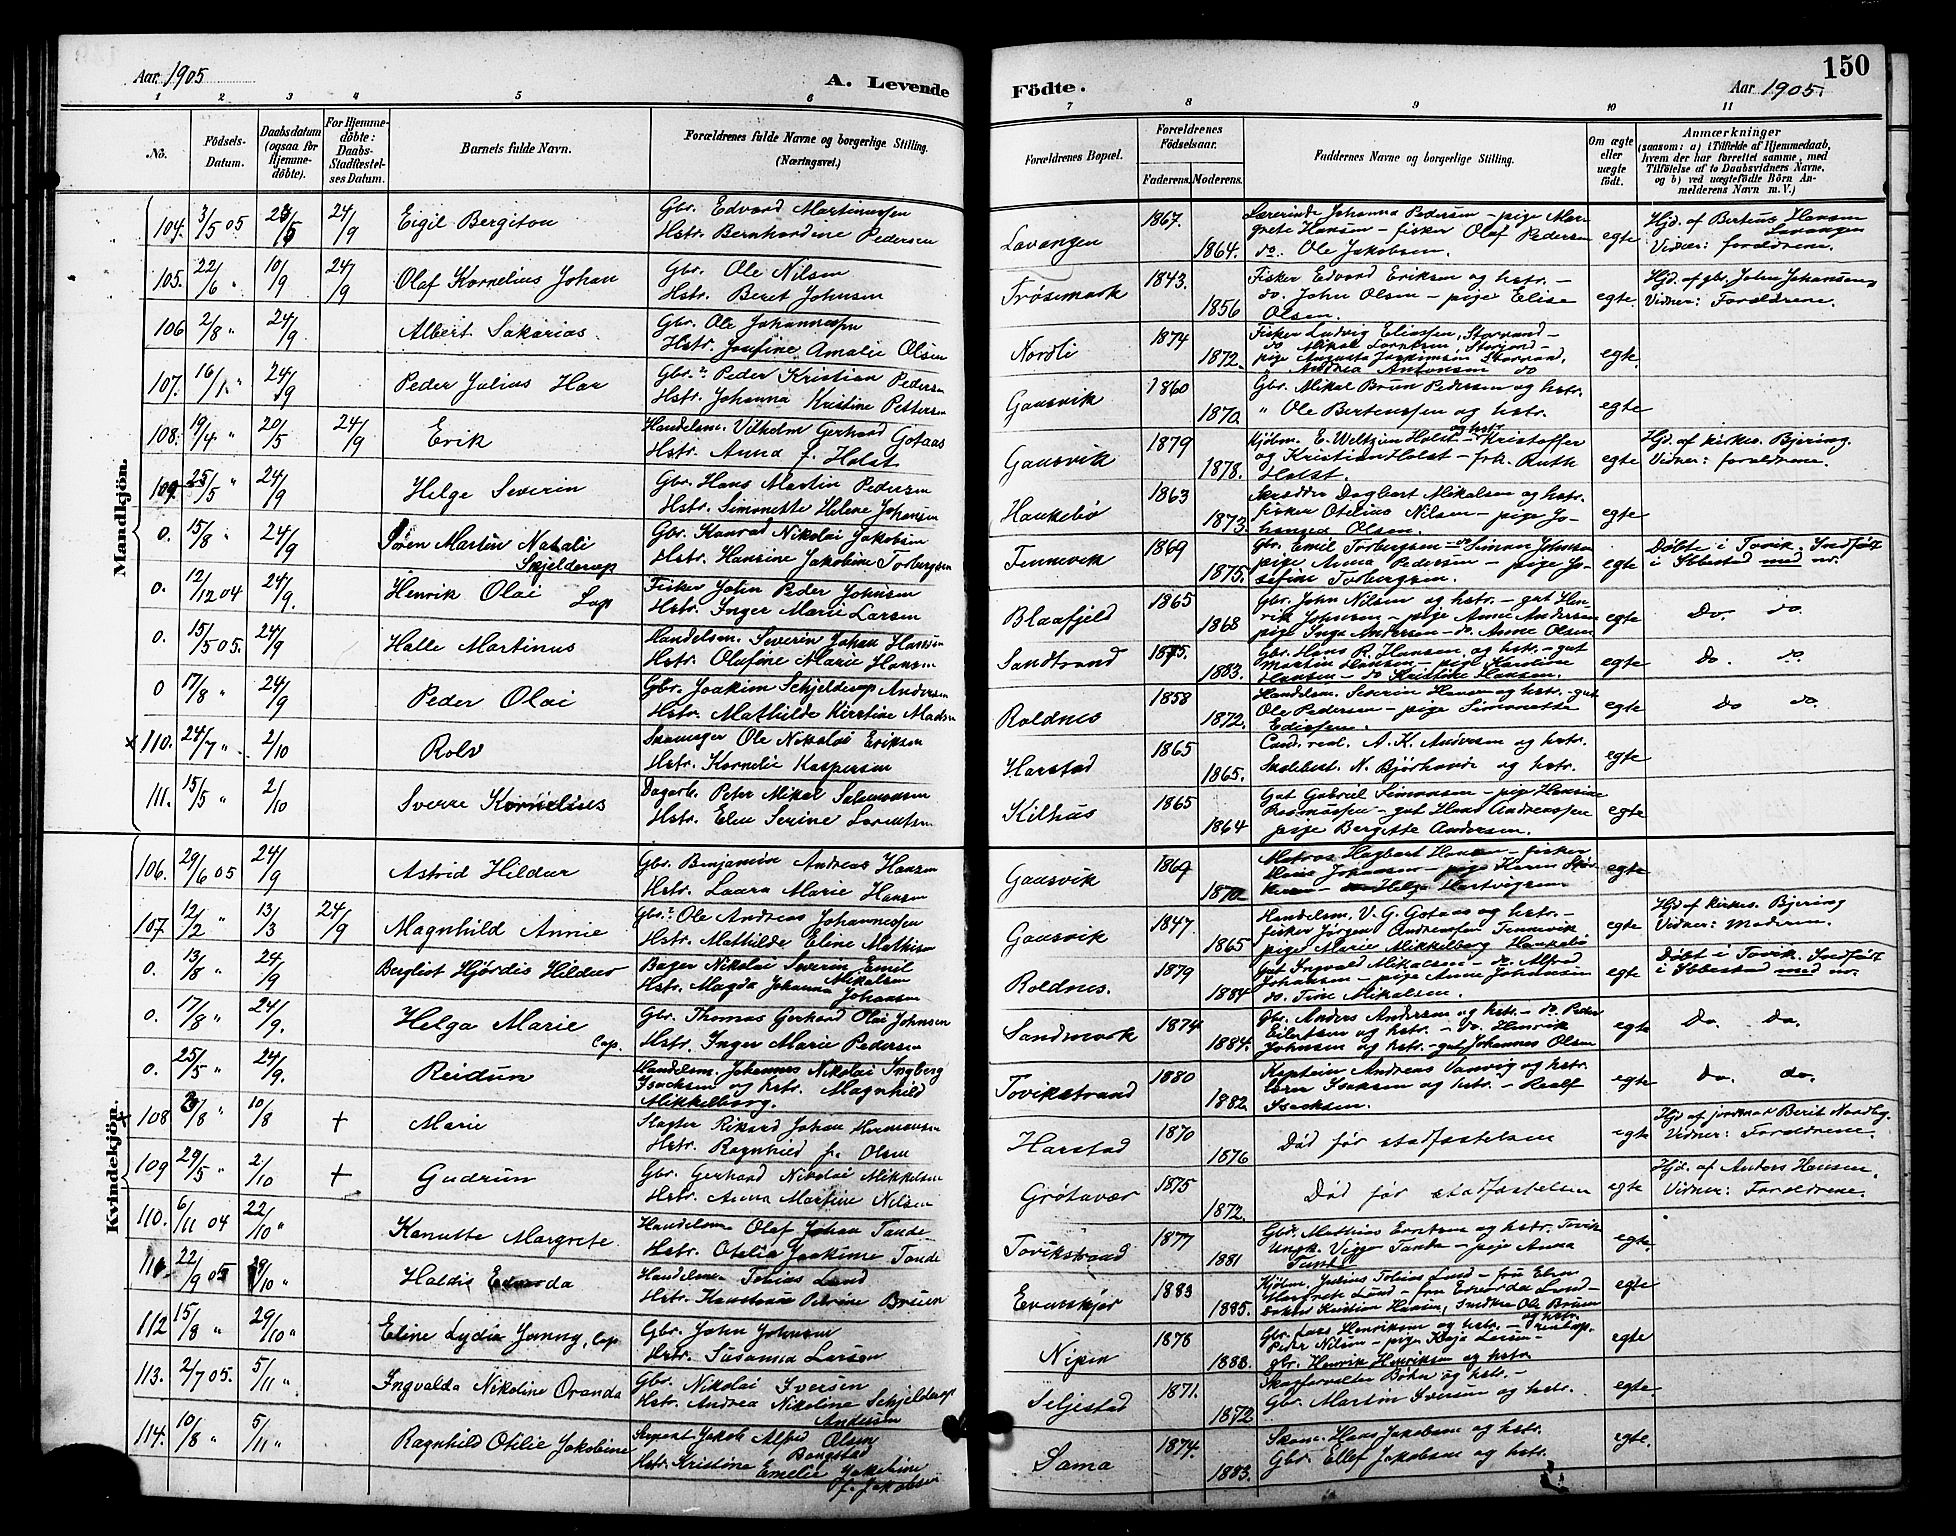 Aar 1905
A. Levende
Födte.
Aar 1905.
150
1 2 3 4 5 6 7 8 9 10 11
No.
Födsels-
Datum.
Daabsdatum
(ogsaa for
Hjemme-
döbte).
For Hjemme-
döbte:
Daabs-
Stadfæstel-
ses Datum.
Barnets fulde Navn.
Forældrenes fulde Navne og borgerlige Stilling.
(Næringsvei.)
Forældrenes Bopæl.
Forældrenes
Födselsaar.
Faderens. Moderens.
Faddernes Navne og borgerlige Stilling.
Om ægte
eller
uægte
födt.
Anmærkninger
(saasom: a) i Tilfælde af Hjemmedaab,
hvem der har forrettet samme, med
Tilföielse af to Daabsvidners Navne,
og b) ved uægtefödte Börn An-
melderens Navn m. V.)
Mandkjön.
104. 3/5 05 24/9 Eigil Bergiton
Gbr. Edvard Martinussen
Hstr. Bernhardine Pedersen
Lavangen 1867. 1864.
Lærerinde Johanna Pedersen – pige Mar-
grete Hansen – fisker Olaf Pedersen
do. Ole Jakobsen.
egte
Hjd. af Berteus Hansen
Lavangen
Vidner: forældrene.
105. 22/6 " 10/9 24/9 Olaf Kornelius Johan
Gbr. Ole Nilsen
Hstr. Beret Johnsen
Trøsemark 1843. 1856
Fisker Edvard Eriksen og hstr. –
do. John Olsen – pige Elise
Olsen.
egte.
Hjd. af gbr. John Johansen,
Vidner: Forældrene.
106 2/8 " 24/9 Albert Sakarias
Gbr. Ole Johannessen
Hstr. Josefine Amalie Olsen
Nordli 1874 1872.
Fisker Ludvig Eliassen, Storjord –
do Mikal Storjord –
pige Augusta
Andrea Antonsen do
egte.
107. 16/1 " 24/9 Peder Julius Har
Gbr. Peder Kristian Pedersen
Hstr. Johanna Kristine Pettersen
Gausvik 1860 1870.
Gbr. Mikal Brun Pedersen og hstr.
" Ole Bertenssen og hstr.
egte
108. 19/4 " 20/5 24/9 Erik
Handelsm. Vilhelm Gerhard Gotaas
Hstr. Anna f. Holst
Gausvik 1879 1878.
Kjøbm. E. Weltzin Holst og hstr. – Kristoffer
og Kristian Holst – frk. Ruth
Holst.
egte
Hjd. af kirkes. Bjering.
Vidner: forældrene.
109. 25/5 " 24/9 Helge Severin
Gbr. Hans Martin Pedersen
Hstr. Simonette Helene Johansen
Haukebø 1863 1873.
Skrædder Dagbart Mikalsen og hstr.
fisker Otelius Nilsen – pige Jo-
Olsen.
egte
0. 15/8 " 24/9 Søren Martin Natali
Skjelderup
Gbr. Konrad Nikolai Jakobsen
Hstr. Hansine Jakobine Torbergsen
Tennevik 1869 1875.
Gbr. Emil Torbergsen – do Simon Johnsen
pige Anna Pedersen – pige Jo-
sefine Torbergsen.
egte
Døbte i Tovik. Indført
i Ibbestad med nr.
0. 12/12 04 24/9. Henrik Olai
Lap
Fisker John Peder Johnsen
Hstr. Inger Marie Larsen
Blaafjeld 1865 1868
Gbr. John Nilsen og hstr. – gut Hen-
rik Johnsen – pige Anne Andersen
pige Inga Andersen – do. Anne Olsen
egte
Do. do.
0. 15/5 05. 24/9 Halle Martinus
Handelsm. Severin Johan Hansen
Hstr. Olufine Marie Hansen
Sandstrand 1875. 1883.
Gbr. Hans R. Hansen og hstr. – gut
Martin Hansen – pige Karoline
Hansen – do Kristine Hansen.
egte
Do. do.
0 17/8 " 24/9 Peder Olai
Gbr. Joakim Schjelderup Andersen
Hstr. Mathilde Kirstine Madsen
Roldnes 1858 1872.
Handelsm. Severin Hansen og hstr. – gut
Ole Pedersen – pige Simonette
egte
do do.
110. 24/7 " 2/10 Rolv
Skomager Ole Nikolai Eriksen
Hstr. Kornelie Kaspersen
Harstad 1865 1865.
Cand. real. A. K. Andersen og hstr.
N. Bjørhovde og hstr.
egte
111. 15/5 " 2/10 Sverre Kornelius
Dagarb. Peter Mikal Salamonsen
Hstr. Elen Serine Lorentsen
Kilhus 1865 1864
Gut Gabriel Simonsen – pige Hansine
Rasmussen – gut Hans Andreassen
pige Bergitte Andersen.
egte
Kvindekjön.
106. 29/6 05 24/9 Astrid Hildur
Gbr. Benjamin Andreas Hansen
Hstr. Laura Marie Hansen
Gausvik 1869 1870
Matros Hagbart Hansen – fisker
Johansen – pige Karen
Helga Hartvigsen
egte
107. 12/2 " 13/3 24/9 Magnhild Annie
Gbr. Ole Andreas Johannessen
Hstr. Mathilde Eline Mathisen
Gausvik 1847 1865
Handelsm. V. G. Gotaas og hstr. –
fisker Jørgen Andreassen Tennevik
pige Marie Mikkelborg Haukebø
egte
Hjd af kirkes. Bjering
Vidner: Moderen.
0. 13/8 " 24/9 Bergliot Hjørdis Hildur
Bager Nikolai Severin Emil
Mikalsen
Hstr. Magda Johanna Johansen
Roldnes. 1879 1884
Gut Ingvald Mikalsen – do. Alfred
Johansen – pige Anna Johansen
do. Tine Mikalsen.
egte
Døbt i Tovik. Indført
i Ibbestad med nr.
0. 17/8 " 24/9. Helga Marie
Lap.
Gbr. Thomas Gerhard Olai Johnsen
Hstr. Inger Marie Pedersen
Sandmark 1874 1884.
Gbr. Anders Andersen og hstr. – do. Peder
Eilertsen og hstr. – do. Henrik
Johnsen og hstr. – gut Johannes Olsen
egte
Do. Do.
0. 25/5 " 24/9. Reidun
Handelsm. Johannes Nikolai Ingberg
Isachsen og hstr. Magnhild
Mikkelborg.
Tovikstrand 1880 1882
Kaptein Andreas Vanvig og hstr.
lærer Isaksen og hstr. – Ralf
Isachsen.
egte
Do. do.
108 3/8 " 10/8 + Marie
Slagter Rikard Johan Hermansen
Hstr. Ragnhild f. Olsen
Harstad 1870 1876
Død før stadfæstelsen
egte
Hjd af jordmor Berit Nordby.
Vidner: Forældrene.
109 29/5 " 2/10 + Gudrun
Gbr. Gerhard Nikolai Mikkelsen
Hstr. Anna Martine Nilsen
Grøtavær 1875 1872.
Død før stadfæstelsen
egte
Hjd. af Anders Hansen.
Vidner: Forældrene.
110. 6/11 04 22/10 " Kanutte Margrete
Handelsm. Olaf Johan Tande
Hstr. Otelia Joakime Tande
Tovikstrand 1877 1881
Gbr. Mathias Berntsen og hstr. Tovik
Ungk. Viggo Tande – pige Anna
Tande
egte.
111. 22/9 05 29/10 " Haldis Edvarda
Handelsm. Tobias Lund
Hstr. Konstanse Petrine Bruun
Evenskjer 1883 1885.
Kjøbm. Julius Tobias Lund – fru Elen
Margrete Lund – fru Edvarda Lund –
Kristian Hansen, Ole Bruun
og hstr.
egte
112 15/8 " 29/10 " Eline Lydia Janny, Lap.
Gbr. John Johnsen
Hstr. Susanna Larsen
Nipen 1878 1888.
Gbr. Lars Henriksen og hstr. –
Peder Nilsen – pige Kaja Larsen –
gbr. Henrik Henriksen og hstr.
egte
113. 2/7 05. 5/11 " Ingvalda Nikoline Oranda
Gbr. Nikolai Iversen
Hstr. Andrea Nikoline Schjelderup
Andersen
Seljestad 1871. 1872
Skogforvalter Bøhn og hstr. –
Gbr. Martin Iversen og hstr.
egte
114. 10/8 " 5/11 " Ragnhild Otelie Jakobine
Sergent Jakob Alfred Olsen
Bangstad
Hstr. Kristine Emelie Jakobine
f. Jakobsen
Sama 1874. 1883.
Skom. Hans Jakobsen og hstr.
Gbr. Ellef Jakobsen og hstr.
egte.